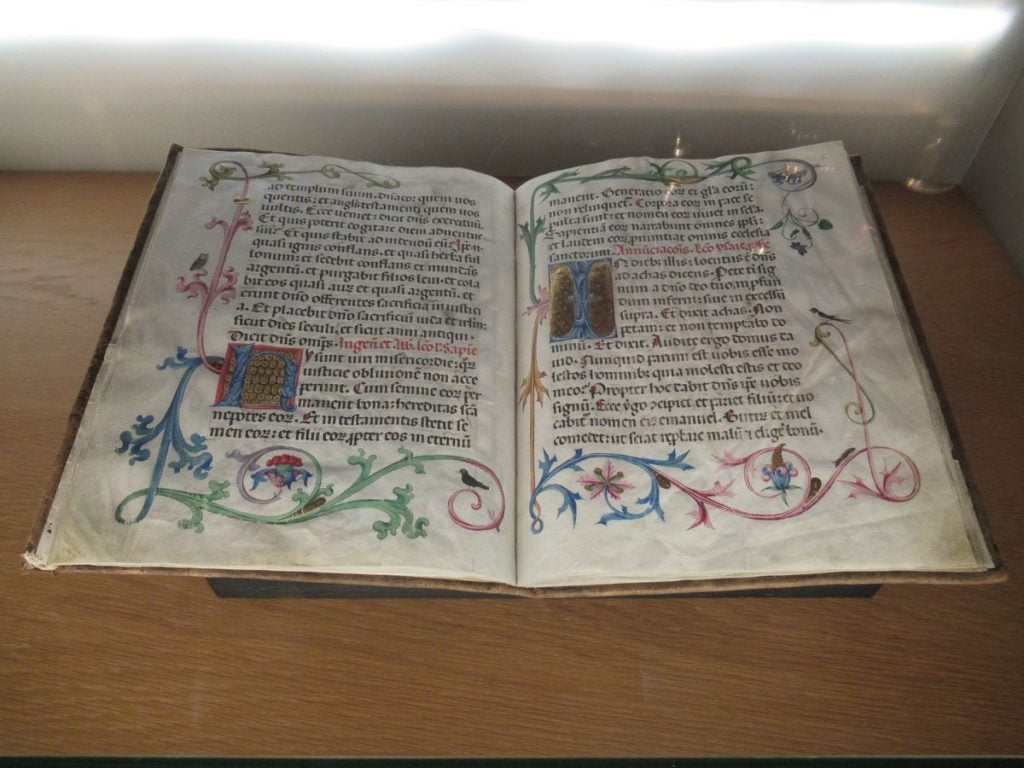 ad templum suum. dñator quem uos
queritis: et angls testamenti quem uos
uultis. Ecce ueniet: dicit dñs exercituũ.
Et quis poterit cogitare diem aduentus
sui? Et quis stabit ad uidendũ eũ? Ip̃e
quasi ignis conflans. et quasi herba ful
lonum: et sedebit conflans et mundãs
argentũ. et purgabit filios leui. et cola
bit eos quasi aur et quasi argentũ. et
erunt dño offerentes sacrificia in iustici
a. Et placebit dño sacrificiũ iuda et irlm:
sicut dies seculi. et sicut anni antiqui.
Dicit dñs omps. Sapie
Hii sunt uiri misericordie: qr
iusticie obliuionẽ non acce
perunt. Cum semine eor per
manent bona: hereditas scã
nepotes eor. Et in testamentis stetit se
men eor: et filii eor ꝓpter eos in eternũ
manent. Generatio eor et gl'a eorũ:
non relinquet̃. Corpora eor in pace se
pulta sunt: et nomen eor uiuet in sẽla.
Sapientiã eor narrabunt omnes ppli:
et laudem eor pnuntiat omnis ecclesia
sanctorum. Annũciacois. lc̃o ysaie
In diebꝰ illis: locutus ẽ dñs
ad achaz dicens. Pete ti sig
num a dño deo tuo in pfun
dum inferni: siue in excelsũ
supra. Et dixit achas. Non
petam: et non temptabo do
minũ. Et dixit. Audite ergo domus da
uid. Numquid parum est uobis esse mo
lestos hominibꝰ: quia molesti estis et deo
meo? Propter hoc dabit dñs ip̃e uobis
signũ. Ecce ỹgo ↄcipiet. et pariet filiũ: et uo
cabit̃ nomen eiꝰ emanuel. Butir et mel
comedet: ut sciat rep̃bare malũ ⁊ elig̃e bonũ.